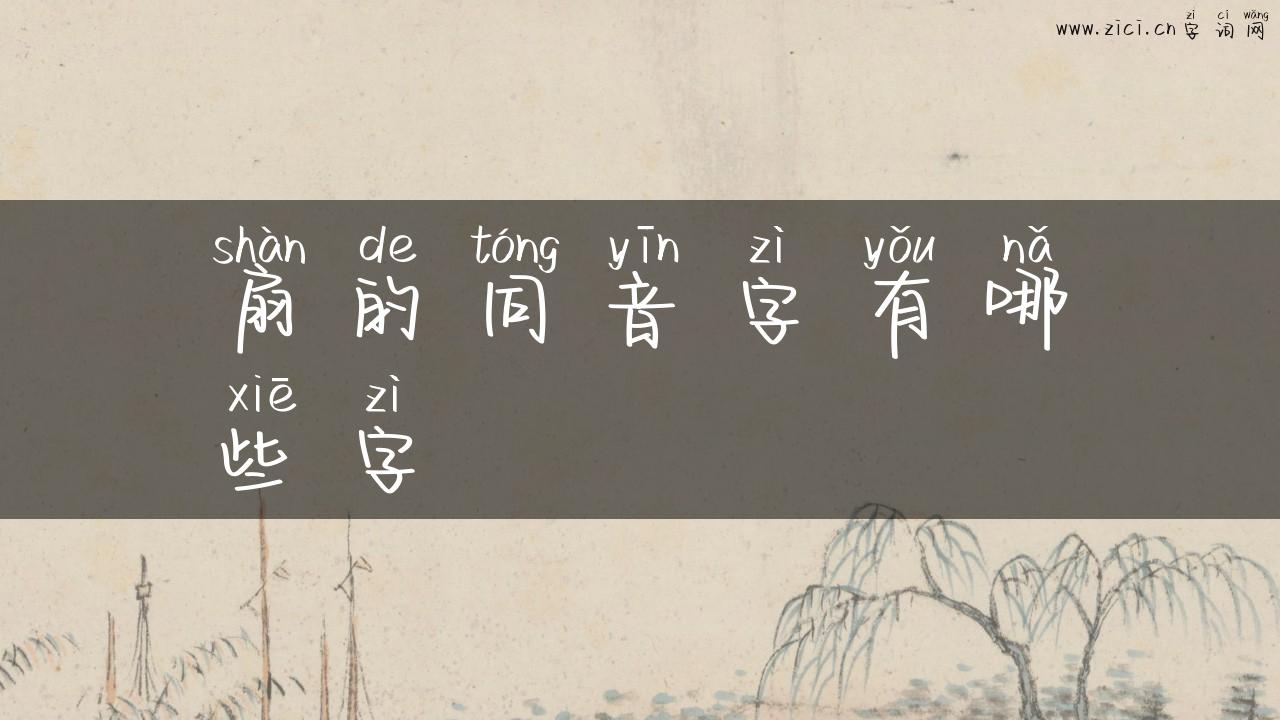 zì cí wǎng
www.zici.cn字词网
shàn de tóng yīn zì yǒu nǎ
扇的同音字有哪
xiē zì
些字